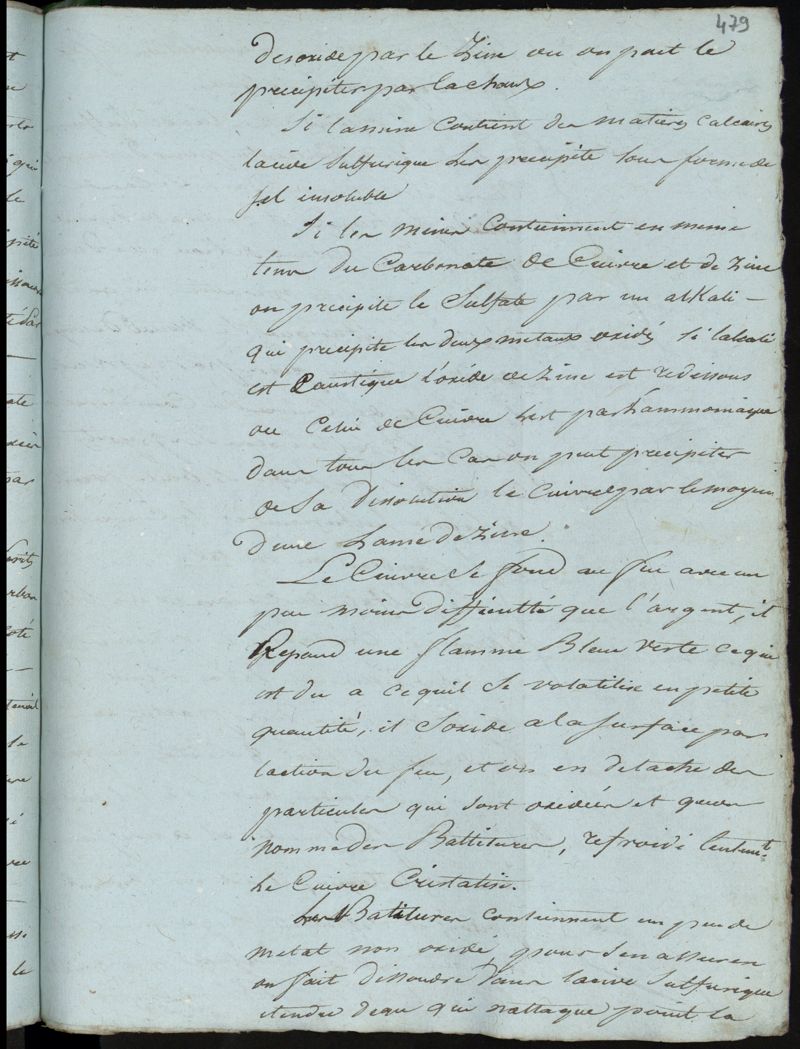 479
desoxide par le Zinc ou on peut le
précipiter par la chaux.
Si la mine contient des matieres calcaires
lacide Sulfurique les precipite sous forme de
sel insoluble
Si les mines contiennent en meme
tems du Carbonate de Cuivre et de Zinc
on precipite le Sulfate par un alkali –
qui precipite les deux metaux oxidés Si lalcali
est Caustique l'oxide de Zinc est redissous
ou Celui de Cuivre lest par l'ammoniaque
dans tous les Cas on peut precipiter
de la dissolution le cuivre par le moyen
d'une Lame de Zinc.
Le Cuivre se fond au feu avec un
peu moins difficulté que l'argent, il
Repand une flamme Bleue verte ce qui
est du a ce quil Se volatilise en petite
quantité, il Soxide a la surface par
laction du feu, et on en detache des
particules qui sont oxidées et quon
nomme des Battitures, refroidi lentemt
le Cuivre Cristalise.
Les Batitures contiennent un peu de
metal non oxidé, pour sen assurer
on fait dissoudre dans lacide Sulfurique
etendu deau qui nattaque point la